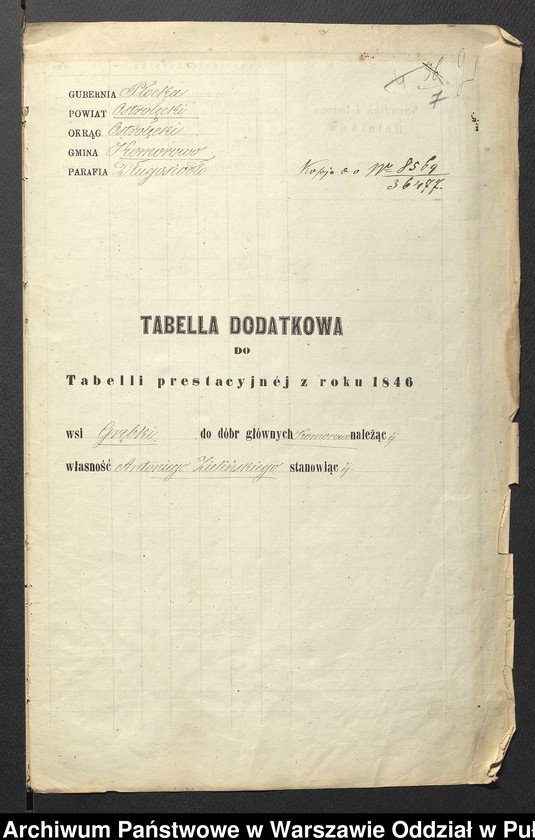 36. 9
7
GUBERNIA Płocka
POWIAT Ostrołęcki
OKRĄG Ostrołęcki
GMINA Komorowo
PARAFIA Długosiodło
Kopja do Nr 8569
36477.
TABELLA DODATKOWA
DO
Tabelli prestacyjnéj z roku 1846
wsi Grębki do dóbr głównych Komorowo należąc éj
własność Antoniego Zielińskiego stanowiąc éj
Archiwum Państwowe w Warszawie Oddział w Puł